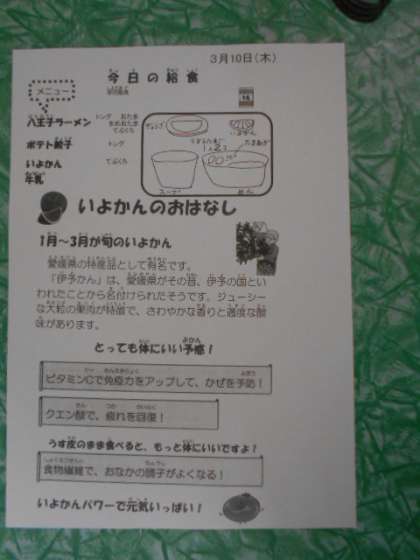 3月10日(木)
今日の給食
メニュー
八王子ラーメン
トング おたま
てぶくろ
ポテト餃子
トング
いよかん
てぶくろ
牛乳
ぎょうざ
いよかん
スープ
めん
いよかんのおはなし
1月～3月が旬のいよかん
愛媛県の特産品として有名です。
「伊予かん」は、愛媛県がその昔、伊予の国とい
われたことから名付けられたそうです。ジューシー
な大粒の果肉が特徴で、さわやかな香りと適度な酸
味があります。
とっても体にいい予感！
ビタミンCで免疫力をアップして、かぜを予防！
クエン酸で、疲れを回復！
うす皮のまま食べると、もっと体にいいですよ！
食物繊維で、おなかの調子がよくなる！
いよかんパワーで元気いっぱい！